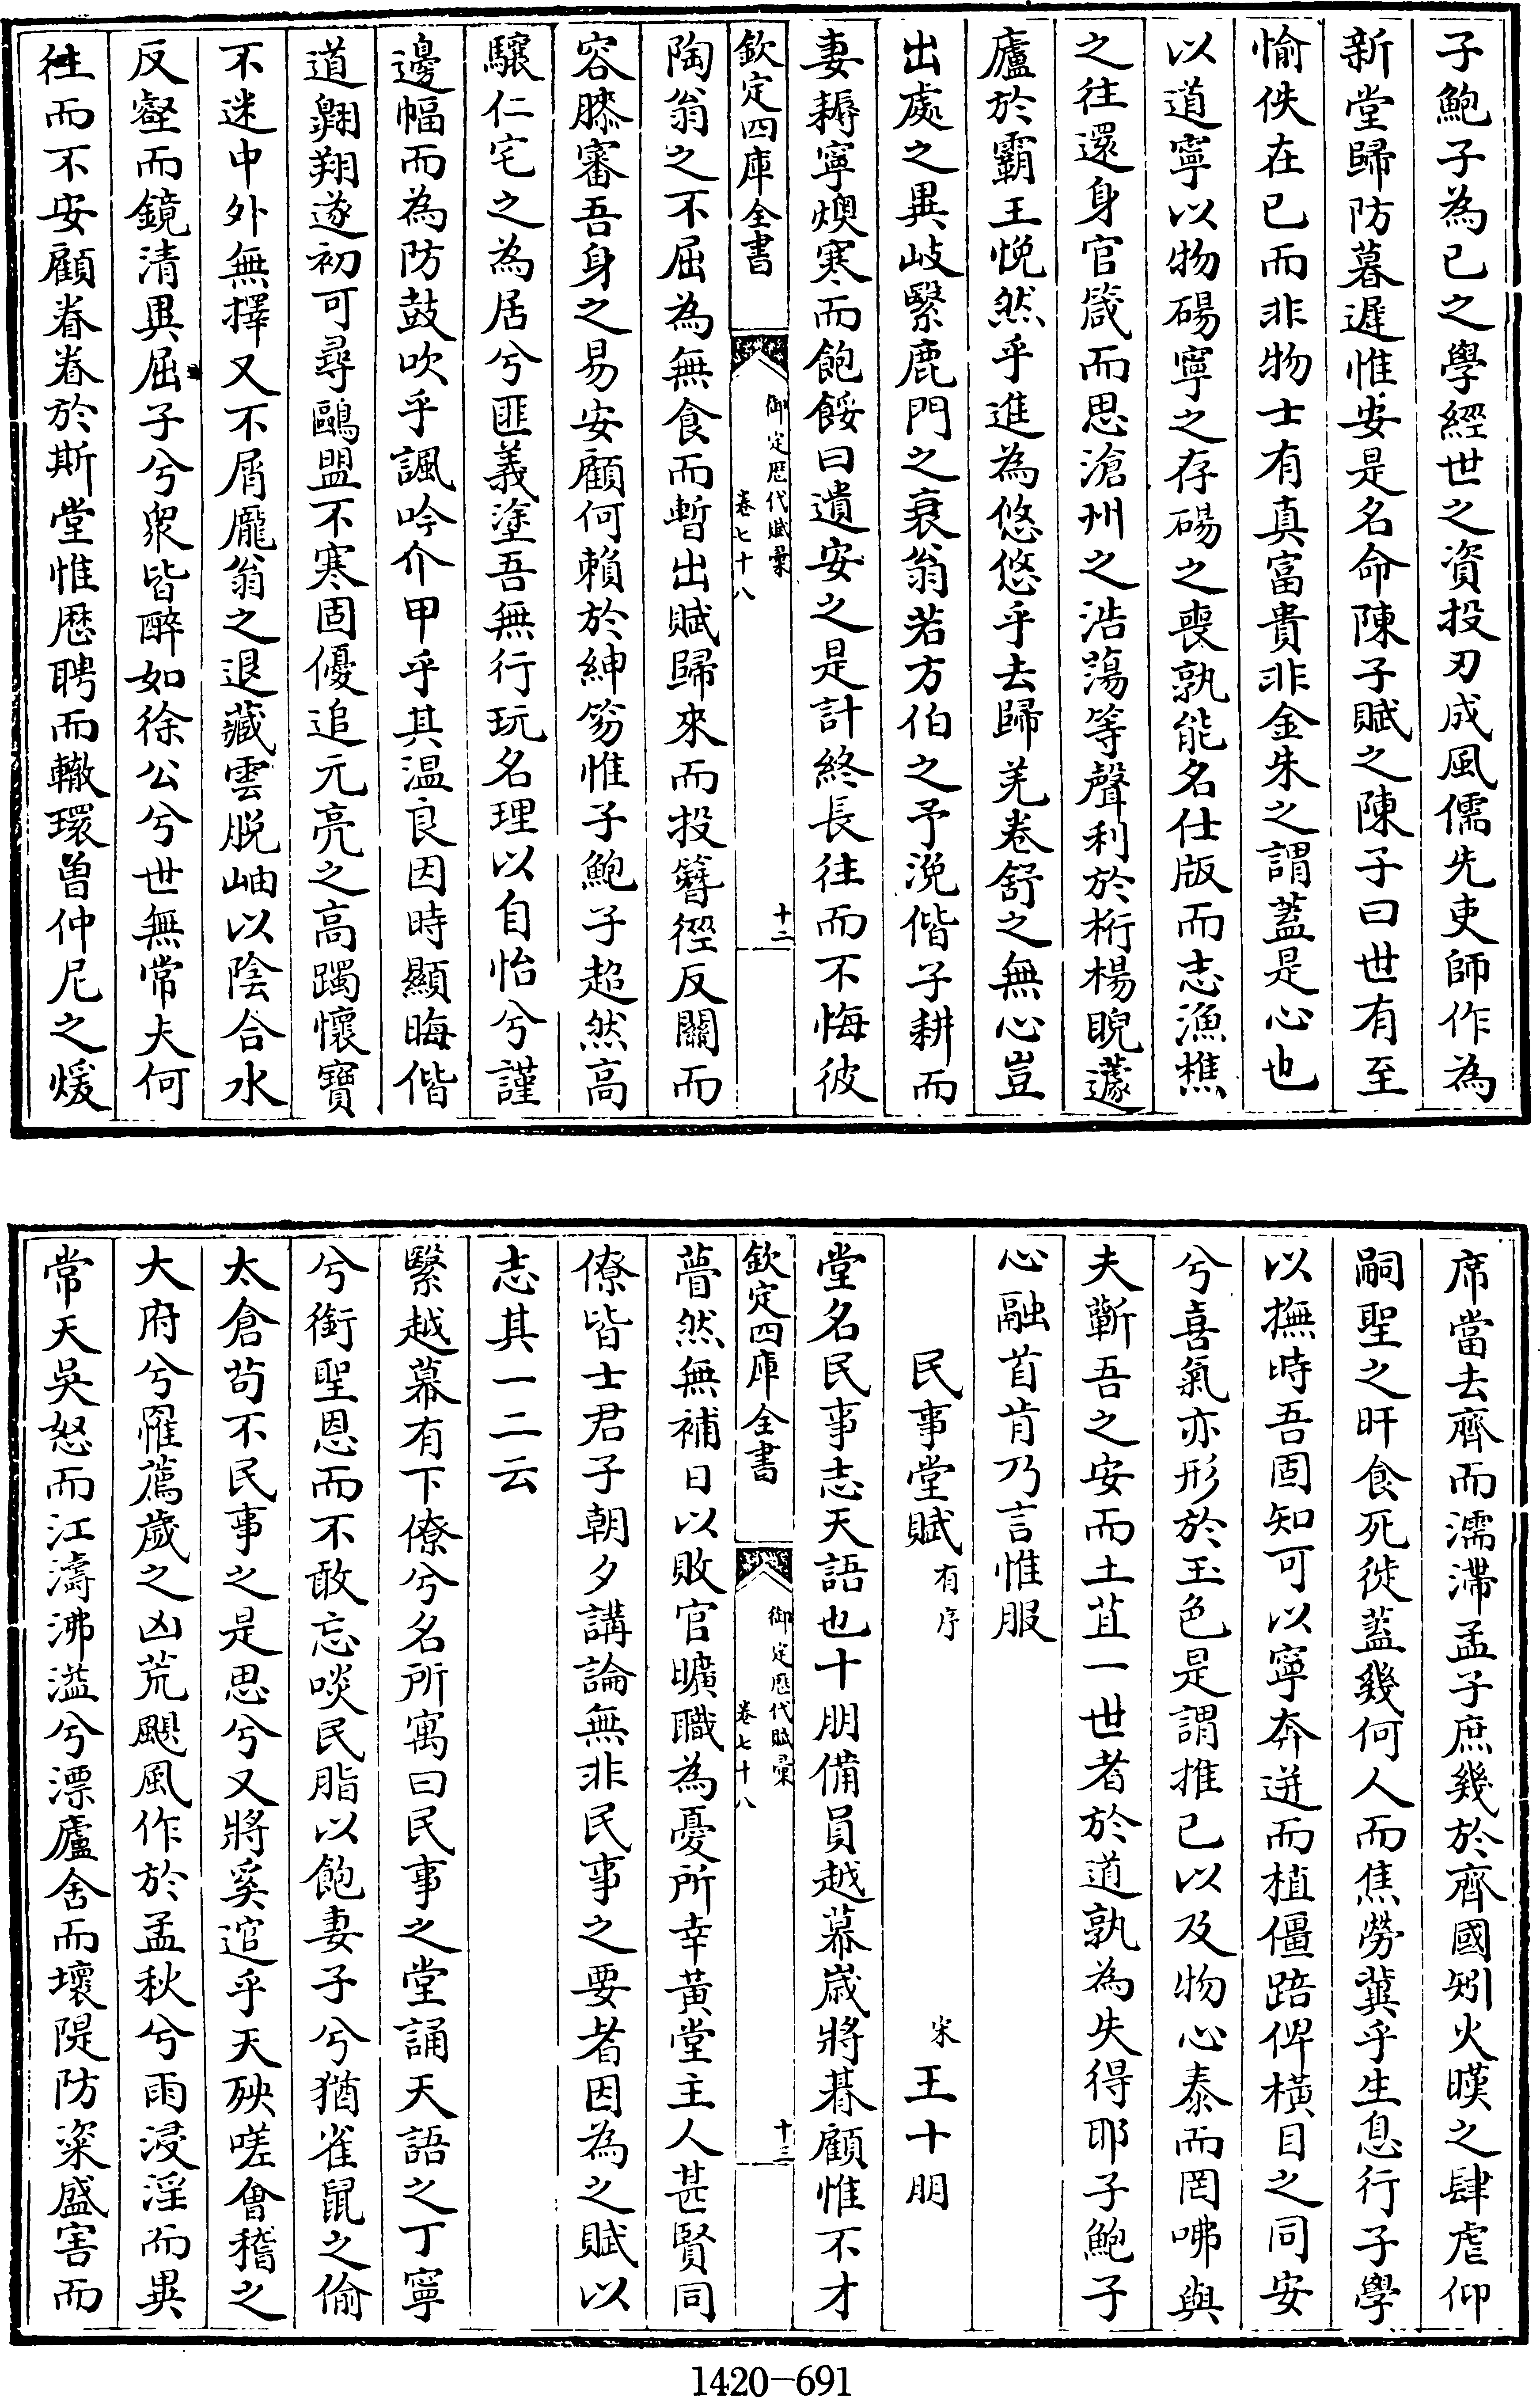 子鮑子為已之學經世之資投刃成風儒先吏師作為
新堂歸防暮遲惟安是名命陳子賦之陳子曰世有至
愉佚在已而非物士有真富貴非金朱之謂蓋是心也
以道寧以物碭寧之存碭之喪孰能名仕版而志漁樵
之往還身官箴而思滄州之浩蕩等聲利於桁楊睨蘧
廬於霸王恍然乎進為悠悠乎去歸羌卷舒之無心豈
出處之異岐繄鹿門之衰翁若方伯之予浼偕子耕而
妻耨寧燠寒而飽餒曰遺安之是計終長往而不悔彼
欽定四庫全書
御定歷代賦彙
卷七十八
十二
陶翁之不屈為無食而暫出賦歸來而投簪徑反關而
容膝審吾身之易安顧何賴於紳笏惟子鮑子超然高
驤仁宅之為居兮匪義塗吾無行玩名理以自怡兮謹
邊幅而為防鼓吹乎諷吟介甲乎其温良因時顯晦偕
道翺翔遂初可尋鷗盟不寒固優追元亮之高躅懷寶
不迷中外無擇又不屑龎翁之退藏雲脱岫以陰合水
反壑而鏡清異屈子兮衆皆醉如徐公兮世無常夫何
徃而不安顧眷眷於斯堂惟歴聘而轍環曽仲尼之煖
席當去齊而濡滯孟子庶幾於齊國矧火暵之肆虐仰
嗣聖之旰食死徙蓋幾何人而焦勞冀乎生息行子學
以撫時吾固知可以寧奔迸而植僵踣俾横目之同安
兮喜氣亦形於玉色是謂推已以及物心泰而罔咈與
夫蘄吾之安而土苴一世者於道孰為失得耶子鮑子
心融首肯乃言惟服
民事堂賦 有序 宋 王十朋
堂名民事志天語也十朋備員越幕歳將朞顧惟不才
瞢然無補日以敗官曠職為憂所幸黄堂主人甚賢同
欽定四庫全書
御定歷代賦彙
卷七十八
十三
僚皆士君子朝夕講論無非民事之要者因為之賦以
志其一二云
繄越幕有下僚兮名所寓曰民事之堂誦天語之丁寧
兮銜聖恩而不敢忘啖民脂以飽妻子兮猶雀鼠之偷
太倉苟不民事之是思兮又將奚逭乎天殃嗟會稽之
大府兮罹薦歲之凶荒颶風作於孟秋兮雨浸淫而異
常天吳怒而江濤沸溢兮漂廬舍而壞隄防粢盛害而
1420-691